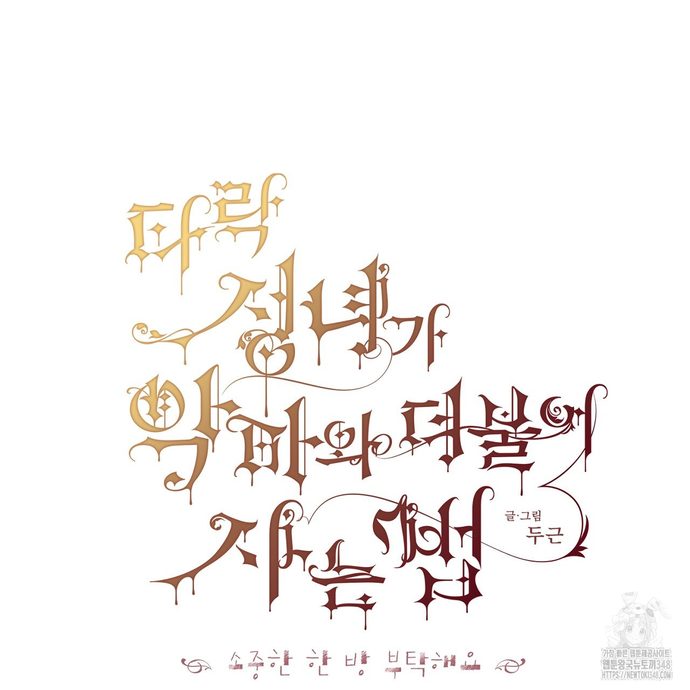 타락
성녀가
악마와 더불어
사는 법
글·그림
두근
소중한 한 방 부탁해요
가장 빠른 웹툰제공사이트
웹툰왕국뉴토끼348
HTTPS://NEWTOKI348.COM